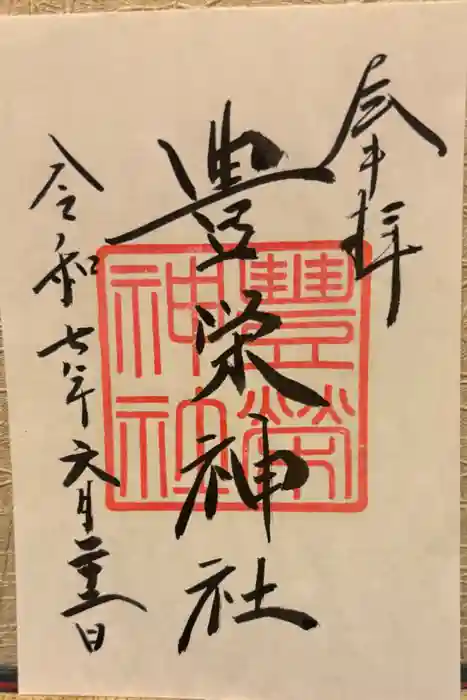 奉拝
豊栄神社
豐榮
神社
令和七年六月二十五日